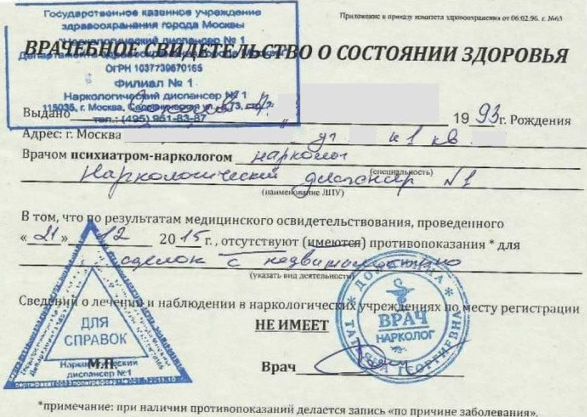 Приложение к приказу комитета здравоохранения от 06.02.96. г. №65
Государственное казенное учреждение
здравоохранения города Москвы
"Наркологический диспансер № 1
Департамента здравоохранения города Москвы"
ОГРН 1037739670165
ФИЛИАЛ № 1
Наркологический диспансер № 1
115035, г. Москва,
тел.: (495) 951-83-87
ВРАЧЕБНОЕ СВИДЕТЕЛЬСТВО О СОСТОЯНИИ ЗДОРОВЬЯ
Выдано 1993 г. Рождения
Адрес: г. Москва к1 кв.
Врачом психиатром-наркологом нарколог
(специальность)
Наркологический диспансер №1
(наименование ЛПУ)
В том, что по результатам медицинского освидетельствования, проведенного
« 21 » 12 2015 г., отсутствуют (имеются) противопоказания * для
сделок с недвижимостью
(указать вид деятельности)
Сведений о лечении и наблюдении в наркологических учреждениях по месту регистрации
НЕ ИМЕЕТ
М.П.
Врач
ДЛЯ
СПРАВОК
Наркологический
диспансер №1
ДОЛГОШЕЯ
ВРАЧ
НАРКОЛОГ
ГЕОРГИЕВНА
*примечание: при наличии противопоказаний делается запись «по причине заболевания».